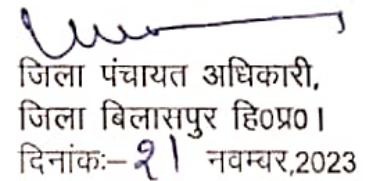 जिला पंचायत अधिकारी,
जिला बिलासपुर हि०प्र०।
दिनांकः–21 नवम्बर,2023